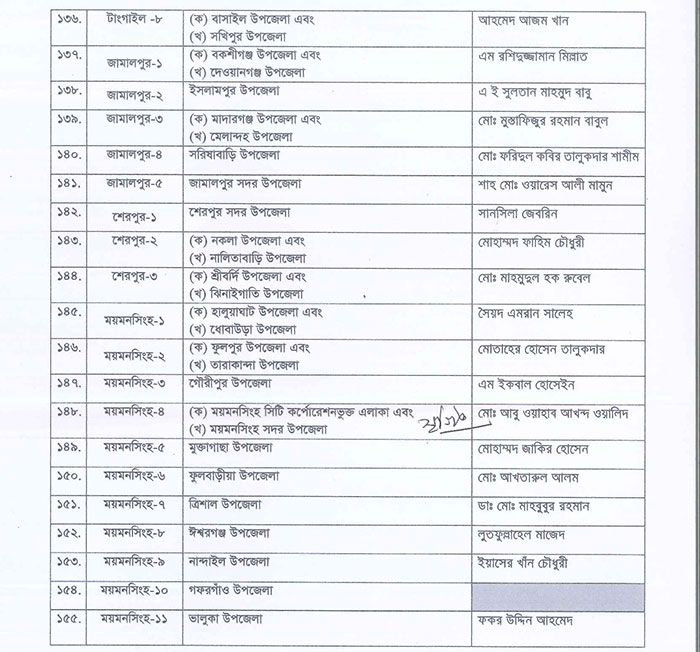 ১৩৬. টাংগাইল -৮ (ক) বাসাইল উপজেলা এবং আহমেদ আজম খান
(খ) সখিপুর উপজেলা
১৩৭. জামালপুর-১ (ক) বকশীগঞ্জ উপজেলা এবং এম রশিদুজ্জামান মিল্লাত
(খ) দেওয়ানগঞ্জ উপজেলা
১৩৮. জামালপুর-২ ইসলামপুর উপজেলা এ ই সুলতান মাহমুদ বাবু
১৩৯. জামালপুর-৩ (ক) মাদারগঞ্জ উপজেলা এবং মোঃ মুস্তাফিজুর রহমান বাবুল
(খ) মেলান্দহ উপজেলা
১৪০. জামালপুর-৪ সরিষাবাড়ি উপজেলা মোঃ ফরিদুল কবির তালুকদার শামীম
১৪১. জামালপুর-৫ জামালপুর সদর উপজেলা শাহ মোঃ ওয়ারেস আলী মামুন
১৪২. শেরপুর-১ শেরপুর সদর উপজেলা সানসিলা জেবরিন
১৪৩. শেরপুর-২ (ক) নকলা উপজেলা এবং মোহাম্মদ ফাহিম চৌধুরী
(খ) নালিতাবাড়ি উপজেলা
১৪৪. শেরপুর-৩ (ক) শ্রীবর্দি উপজেলা এবং মোঃ মাহমুদুল হক রুবেল
(খ) ঝিনাইগাতি উপজেলা
১৪৫. ময়মনসিংহ-১ (ক) হালুয়াঘাট উপজেলা এবং সৈয়দ এমরান সালেহ
(খ) ধোবাউড়া উপজেলা
১৪৬. ময়মনসিংহ-২ (ক) ফুলপুর উপজেলা এবং মোতাহের হোসেন তালুকদার
(খ) তারাকান্দা উপজেলা
১৪৭. ময়মনসিংহ-৩ গৌরীপুর উপজেলা এম ইকবাল হোসেইন
১৪৮. ময়মনসিংহ-৪ (ক) ময়মনসিংহ সিটি কর্পোরেশনভুক্ত এলাকা এবং মোঃ আবু ওয়াহাব আখন্দ ওয়ালিদ
(খ) ময়মনসিংহ সদর উপজেলা
১৪৯. ময়মনসিংহ-৫ মুক্তাগাছা উপজেলা মোহাম্মদ জাকির হোসেন
১৫০. ময়মনসিংহ-৬ ফুলবাড়ীয়া উপজেলা মোঃ আখতারুল আলম
১৫১. ময়মনসিংহ-৭ ত্রিশাল উপজেলা ডাঃ মোঃ মাহবুবুর রহমান
১৫২. ময়মনসিংহ-৮ ঈশ্বরগঞ্জ উপজেলা লুতফুল্লাহেল মাজেদ
১৫৩. ময়মনসিংহ-৯ নান্দাইল উপজেলা ইয়াসের খাঁন চৌধুরী
১৫৪. ময়মনসিংহ-১০ গফরগাঁও উপজেলা
১৫৫. ময়মনসিংহ-১১ ভালুকা উপজেলা ফকর উদ্দিন আহমেদ